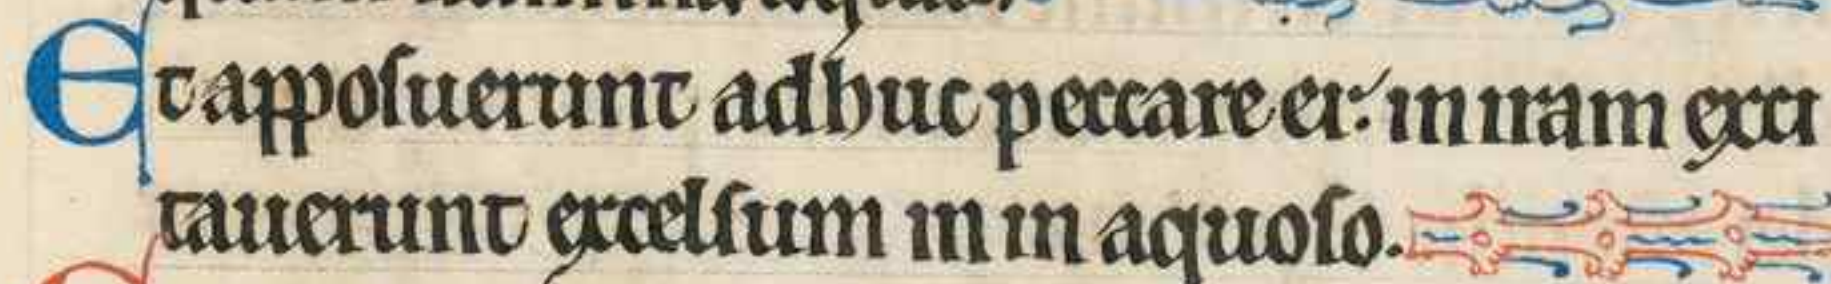 Et appoſuerunt adhuc peccare ei: in iram exci
tauerunt excelſum in in aquoſo.